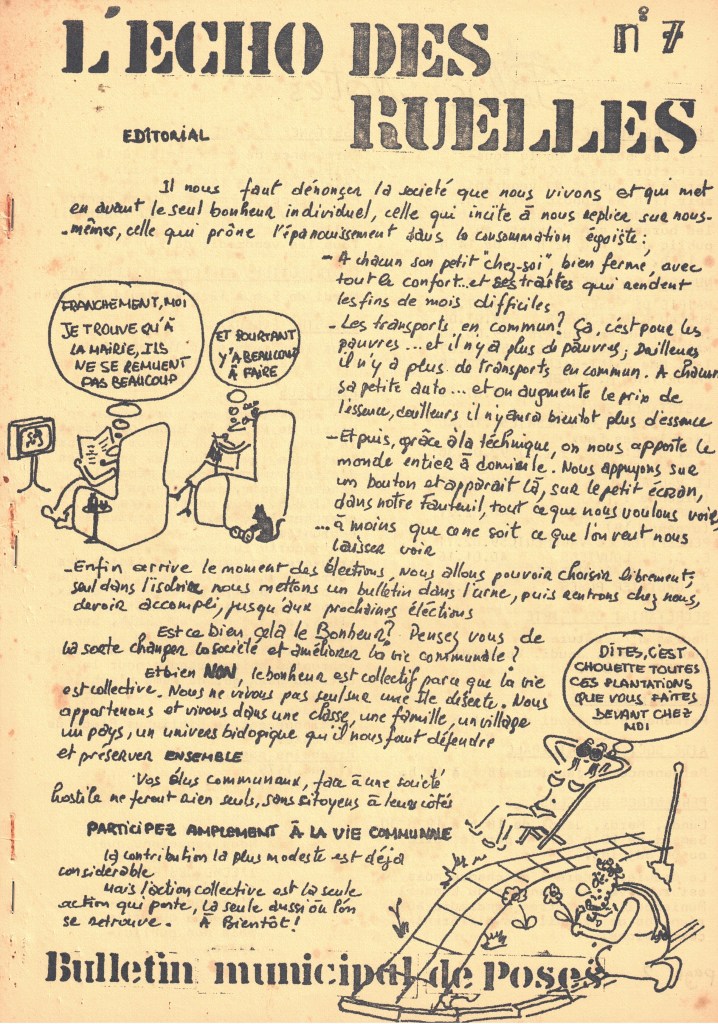 L'ECHO DES
RUELLES
n° 7
EDITORIAL
Il nous faut dénonçer la société que nous vivons et qui met
en avant le seul bonheur individuel, celle qui incite à nous replier sur nous-
-mêmes, celle qui prône l'épanouissement dans la consommation égoïste :
- A chacun son petit "chez-soi", bien fermé, avec
tout le confort.. et ses traites qui rendent
les fins de mois difficiles
- Les transports en commun? Ça, c'est pour les
pauvres ... et il n'y a plus de pauvres; D'ailleurs
il n'y a plus de transports en commun. A chacun
sa petite auto ... et on augmente le prix de
l'éssence, d'ailleurs il n'y aura bientot plus d'essence
- Et puis, grâce à la téchnique, on nous apporte le
monde entier à domicile. Nous appuyons sur
un bouton et apparait là, sur le petit écran,
dans notre fauteuil, tout ce que nous voulons voir,
... à moins que ce ne soit ce que l'on veut nous
laisser voir
FRANCHEMENT, MOI
JE TROUVE QU'À
LA MAIRIE, ILS
NE SE REMUENT
PAS BEAUCOUP
ET POURTANT
Y'A BEAUCOUP
À FAIRE
- Enfin arrive le moment des élections. Nous allons pouvoir choisir librement,
seul dans l'isoloir nous mettons un bulletin dans l'urne, puis rentrons chez nous,
devoir accompli, jusqu'aux prochaines éléctions
Est ce bien, cela le Bonheur? Pensez vous de
la sorte changer la société et améliorer la vie communale ?
Et bien NON, le bonheur est collectif parce que la vie
est collective. Nous ne vivons pas seul sur une Ile déserte. Nous
appartenons et vivons dans une classe, une famille, un village
un pays, un univers biologique qu'il nous faut défendre
et préserver ENSEMBLE
Vos élus communaux, face à une société
hostile ne feront rien seuls, sans citoyens à leurs côtés
PARTICIPEZ AMPLEMENT À LA VIE COMMUNALE
la contribution la plus modeste est déja
considérable
Mais l'action collective est la seule
action qui porte, la seule aussi où l'on
se retrouve. À Bientôt!
DITES, C'EST
CHOUETTE TOUTES
CES PLANTATIONS
QUE VOUS FAITES
DEVANT CHEZ
MOI
Bulletin municipal de Poses